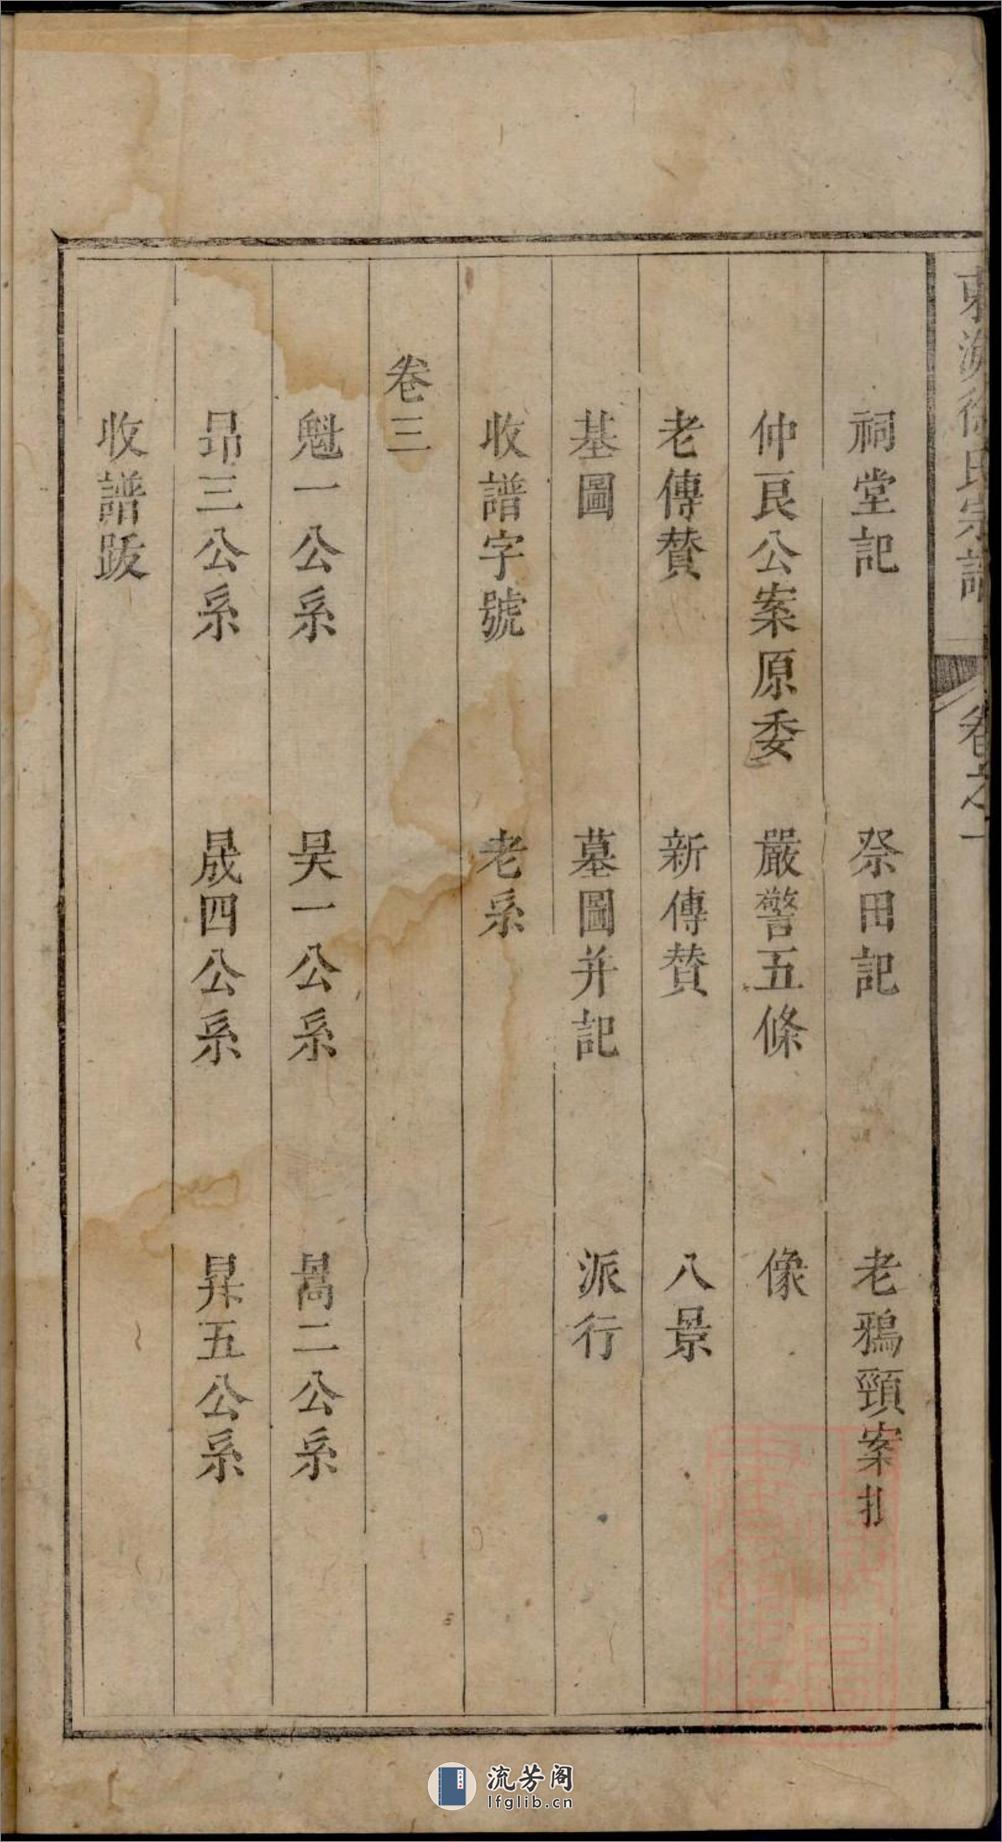 東海徐氏宗譜 卷之一
祠堂記 祭田記 老鴉頸案
仲良公案原委 嚴警五條 像
老傳贊 新傳贊 八景
基圖 墓圖并記 派行
收譜字號 老系
卷三
魁一公系 昊一公系 暠二公系
昂三公系 晟四公系 昇五公系
收譜跋
流芳阁
lfglib.cn